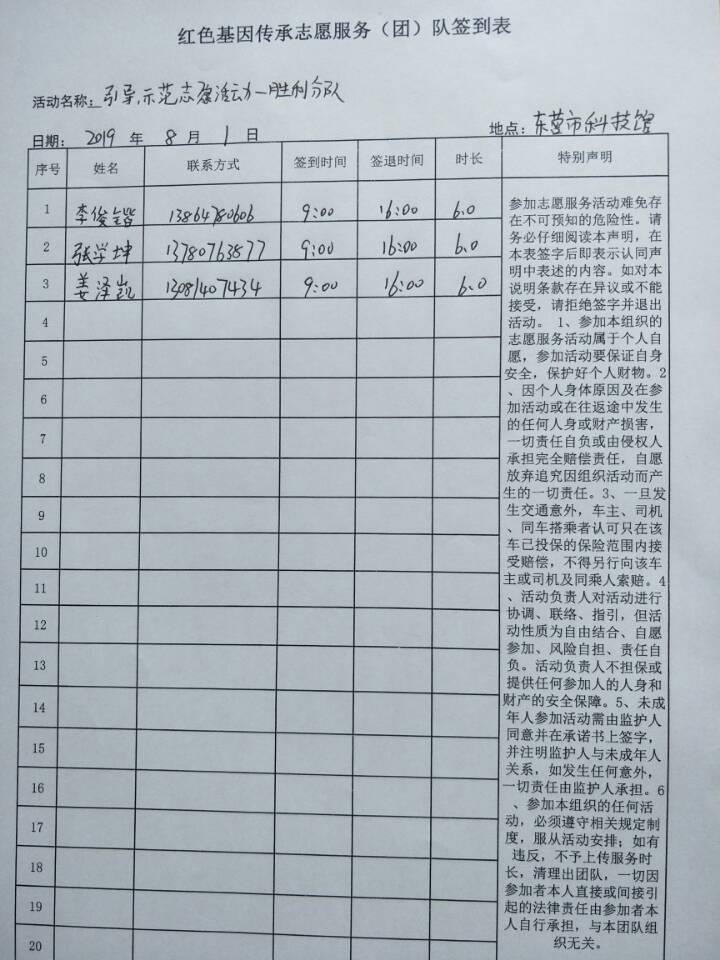 红色基因传承志愿服务（团）队签到表
活动名称：引导、示范志愿活动—胜利分队
日期： 2019 年 8 月 1 日 地点：东营市科技馆
序号 姓名 联系方式 签到时间 签退时间 时长 特别声明
1 李俊锴 13864780606 9:00 16:00 6.0
2 张学坤 13780763877 9:00 16:00 6.0
3 姜泽凯 13081407434 9:00 16:00 6.0
4
5
6
7
8
9
10
11
12
13
14
15
16
17
18
19
20
参加志愿服务活动难免存
在不可预知的危险性。请
务必仔细阅读本声明，在
本表签字后即表示认同声
明中表述的内容。如对本
说明条款存在异议或不能
接受，请拒绝签字并退出
活动。 1、参加本组织的
志愿服务活动属于个人自
愿，参加活动要保证自身
安全，保护好个人财物。2
、因个人身体原因及在参
加活动或在往返途中发生
的任何人身或财产损害，
一切责任自负或由侵权人
承担完全赔偿责任，自愿
放弃追究因组织活动而产
生的一切责任。3、一旦发
生交通意外，车主、司机
、同车搭乘者认可只在该
车已投保的保险范围内接
受赔偿，不得另行向该车
主或司机及同乘人索赔。4
、活动负责人对活动进行
协调、联络、指引，但活
动性质为自由结合、自愿
参加、风险自担、责任自
负。活动负责人不担保或
提供任何参加人的人身和
财产的安全保障。5、未成
年人参加活动需由监护人
同意并在承诺书上签字，
并注明监护人与未成年人
关系，如发生任何意外，
一切责任由监护人承担。6
、参加本组织的任何活
动，必须遵守相关规定制
度，服从活动安排；如有
违反，不予上传服务时
长，清理出团队，一切因
参加者本人直接或间接引
起的法律责任由参加者本
人自行承担，与本团队组
织无关。